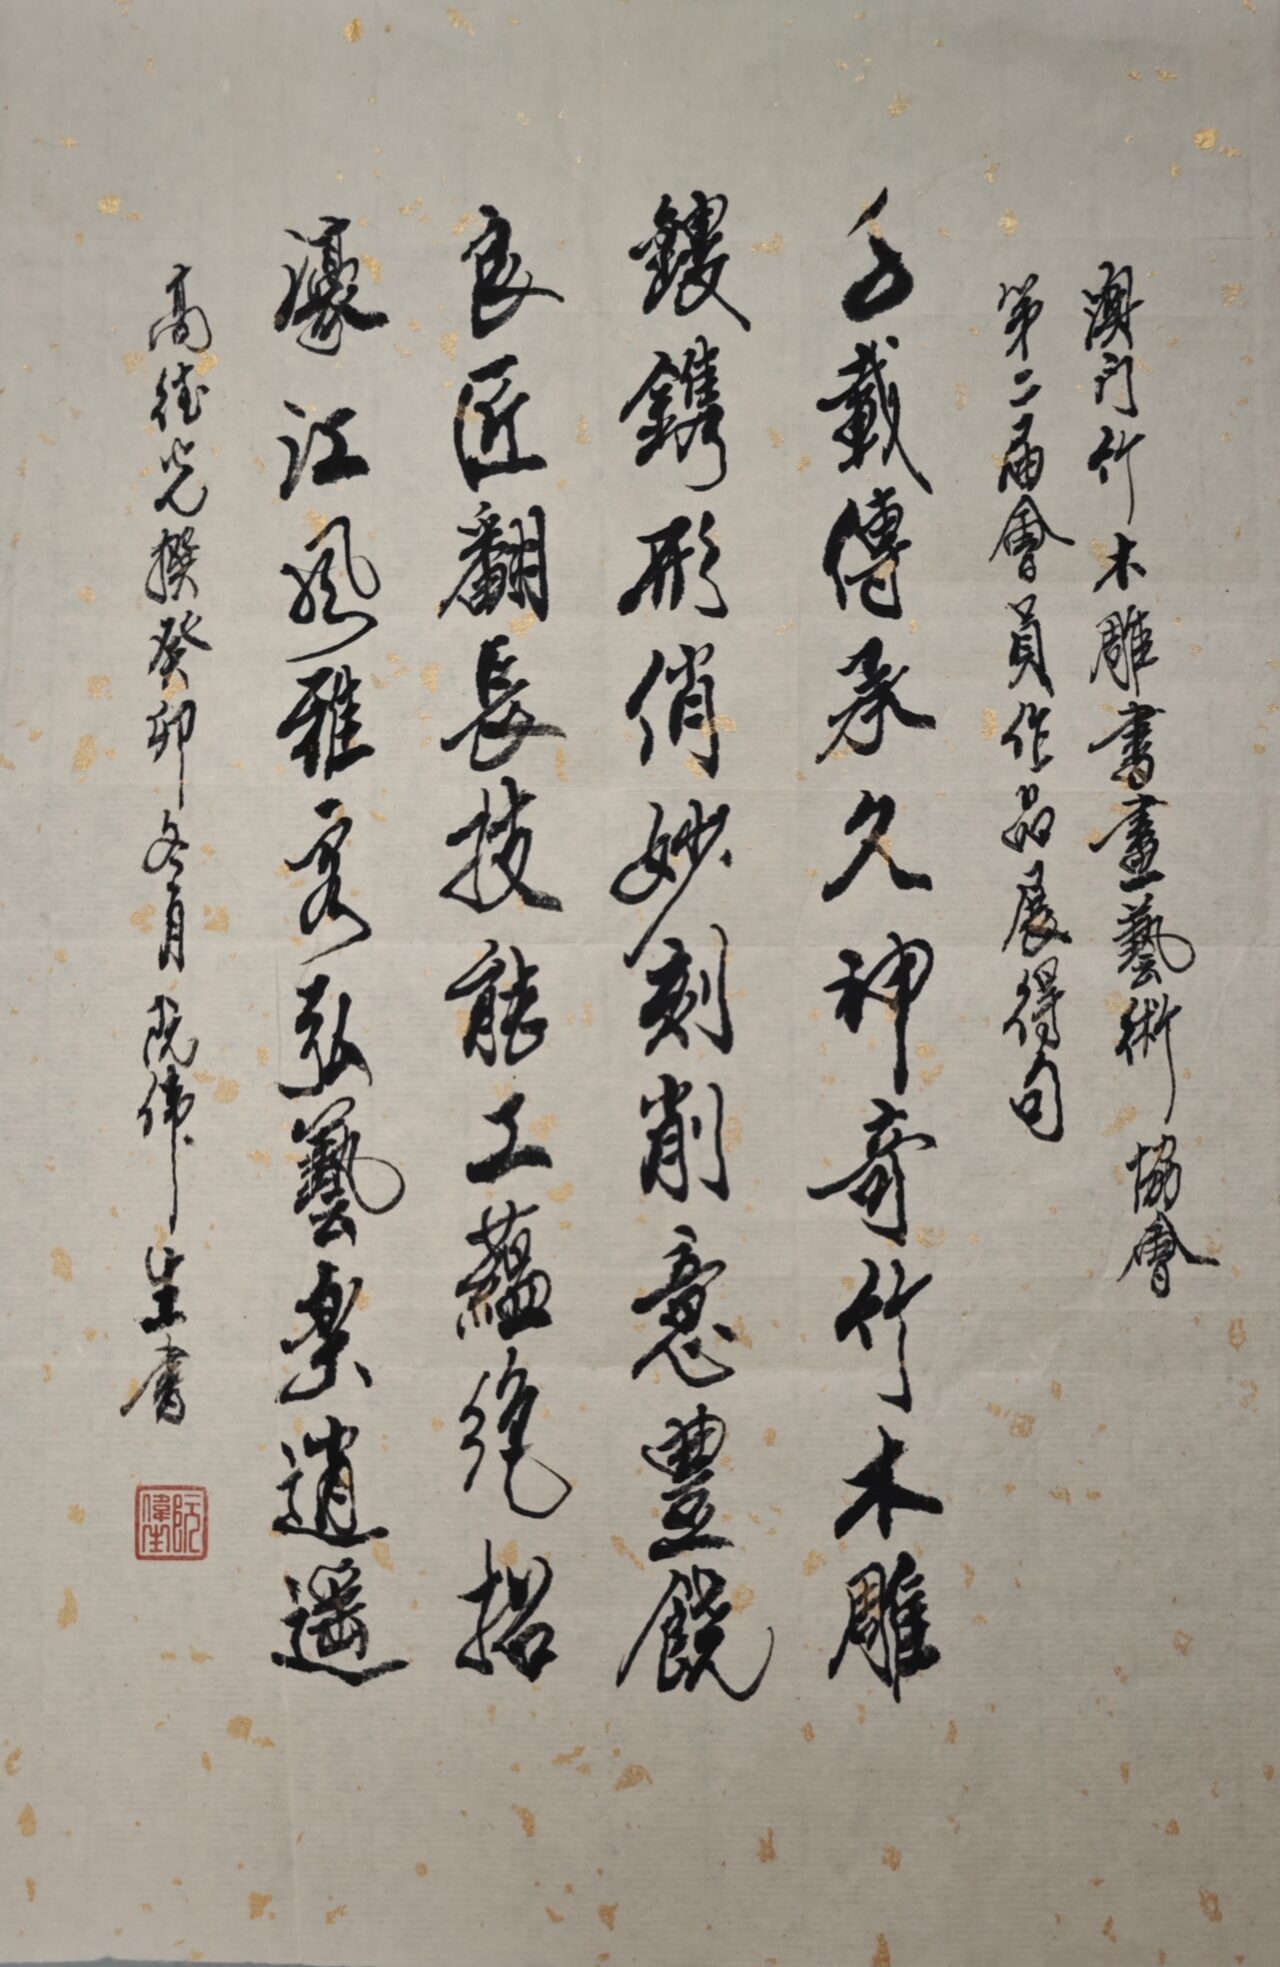 澳門竹木雕書畫藝術協會
第二屆會員作品展得句
千載傳承久神奇竹木雕
鏤鐫形俏妙刻削意豐饒
良匠翻長技能工蘊絕招
濠江風雅客弘藝樂逍遙
高德光撰癸卯冬月阮偉生書
阮偉生